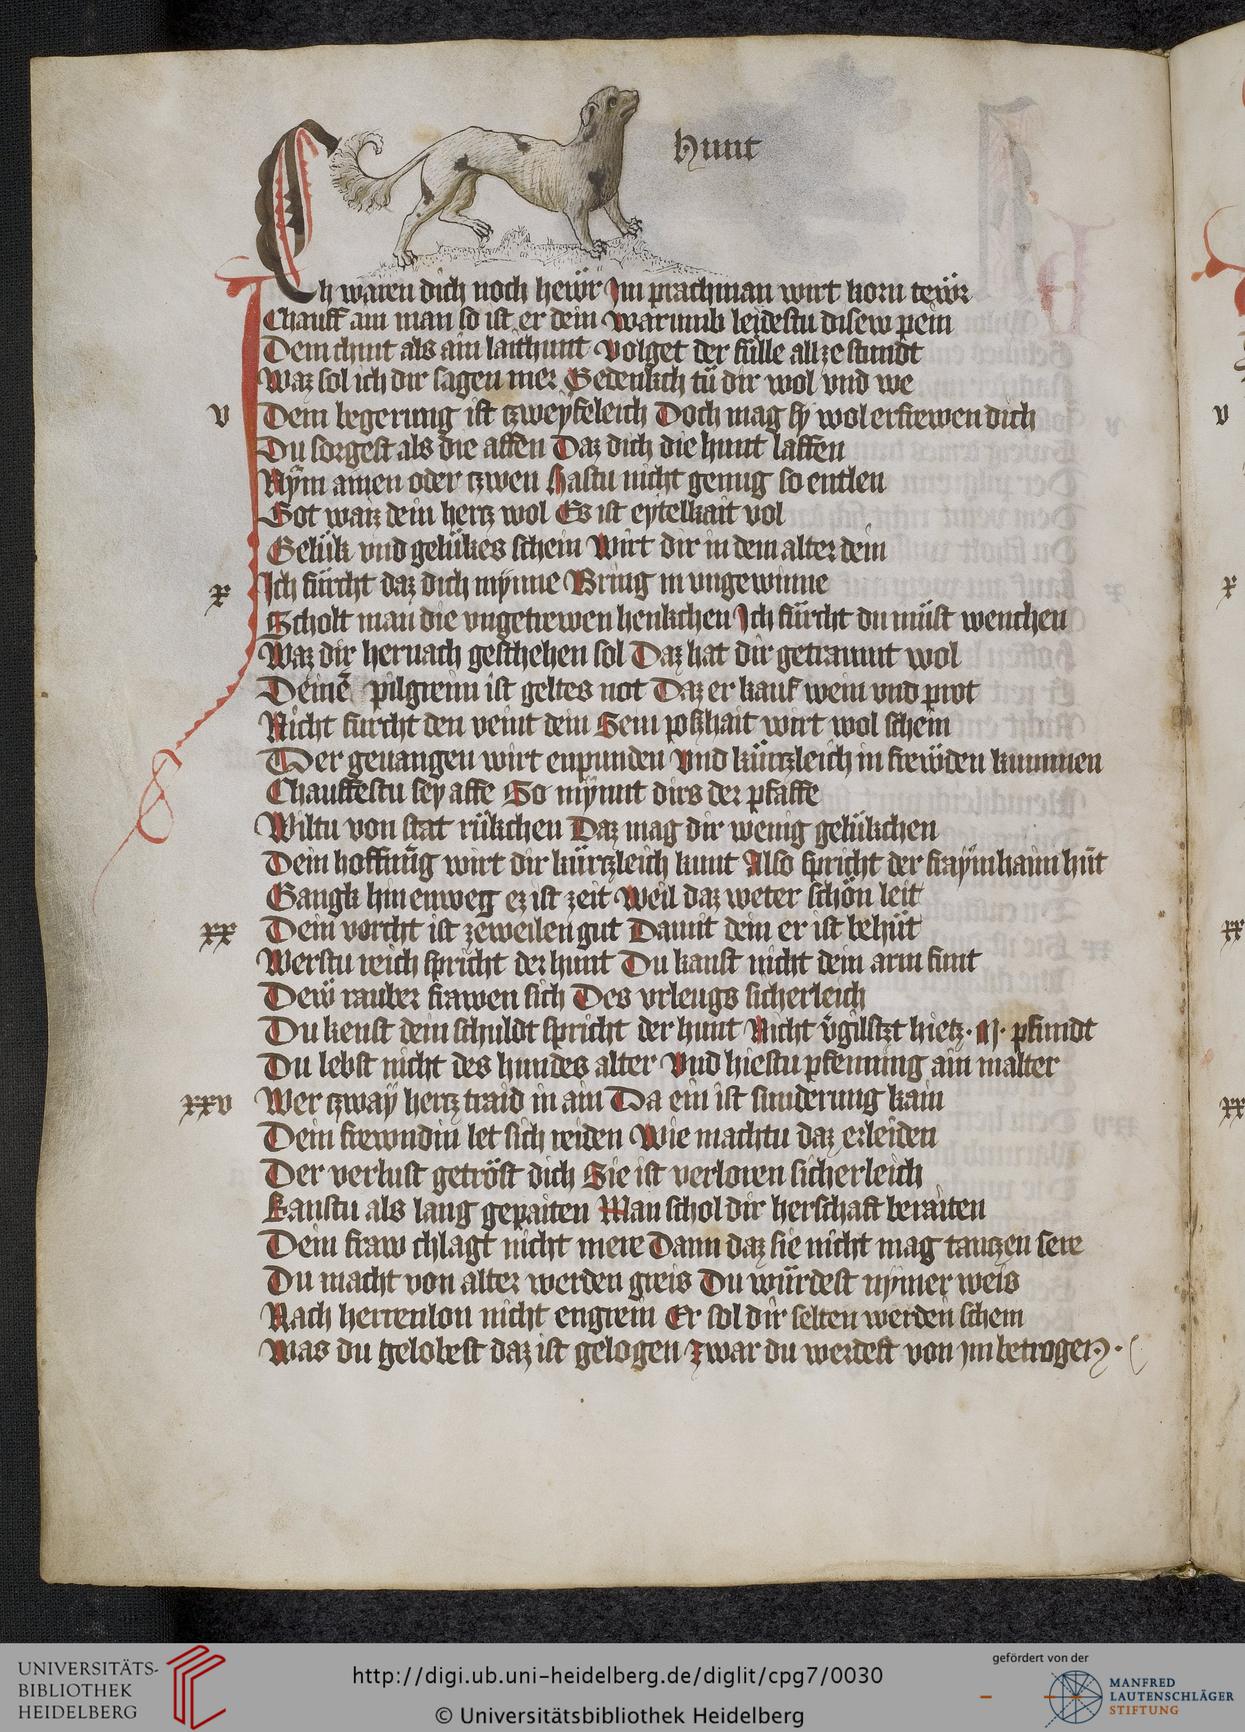 hunt
Ich waren dich noch hewr Im prachman wirt korn tewr
Chauff ain man so ist er dein Warumb leidestu disew pein
Dem chint als ain laithunt Volget der fülle all ze stundt
Waz sol ich dir sagen mer Gedenkch tü dir wol vnd we
v Dein begerung ist tzweyfeleich Doch mag sy wol erfrewen dich
Du sorgest als die affen Daz dich die hunt laffen
Nÿm ainen oder tzwen Hastu nicht genug so entlen
Got waiz dein hertz wol Es ist eytelkait vol
Gelük vnd gelükes schein Wirt dir in dem alter dein
x Ich fürcht daz dich mynne Bring in vngewinne
Scholt man die vngetrewen henkchen Ich fürcht du müst wenchen
Waz dir hernach geschehen sol Daz hat dir getraumt wol
Deinē pilgreim ist geltes not Daz er kauf wein vnd prot
Nicht furcht den veint dein Sein poshait wirt wol schein
Der geuangen wirt enpunden Vnd kürtzleich in frewden kummen
Chauffestu sey affe So nÿmt dirs der pfaffe
Wiltu von stat rükchen Daz mag dir wenig gelükchen
Dein hoffnūg wirt dir kürtzleich kunt Also spricht der fraÿmhaim hūt
Gangk hin enweg ez ist zeit Weil daz weter schön leit
xx Dein vorcht ist zeweilen gut Damit dein er ist behüt
Werstu reich spricht der hunt Du kanst nicht dein arm sunt
Dew rauber frawen sich Des vrleugs sicherleich
Du kenst dein schuldt spricht der hunt Nicht v̄giltszt hietz · ij · pfundt
Du lebst nicht des hundes alter Vnd hiestu pfenning ain malter
xxv Wer tzwaÿ hertz traid in ain Da ein ist sunderung kain
Dein frewndin let sich reiden Wie machtu daz erleiden
Der verlust getröst dich Sie ist verloren sicherleich
Kanstu als lang gepaiten Man schol dir herschaft beraiten
Dein fraw chlagt nicht mere Dann daz sie nicht mag tantzen sere
Du macht von alter werden greis Du würdest nymer weis
Nach herrenlon nicht engrein Er sol dir selten werden schein
Was du gelobest daz ist gelogen Zwar du werdest von im betrogen ·
v
x
xx
xx
UNIVERSITÄTS-
BIBLIOTHEK
HEIDELBERG
http://digi.ub.uni-heidelberg.de/diglit/cpg7/0030
© Universitätsbibliothek Heidelberg
gefördert von der
MANFRED
LAUTENSCHLÄGER
STIFTUNG